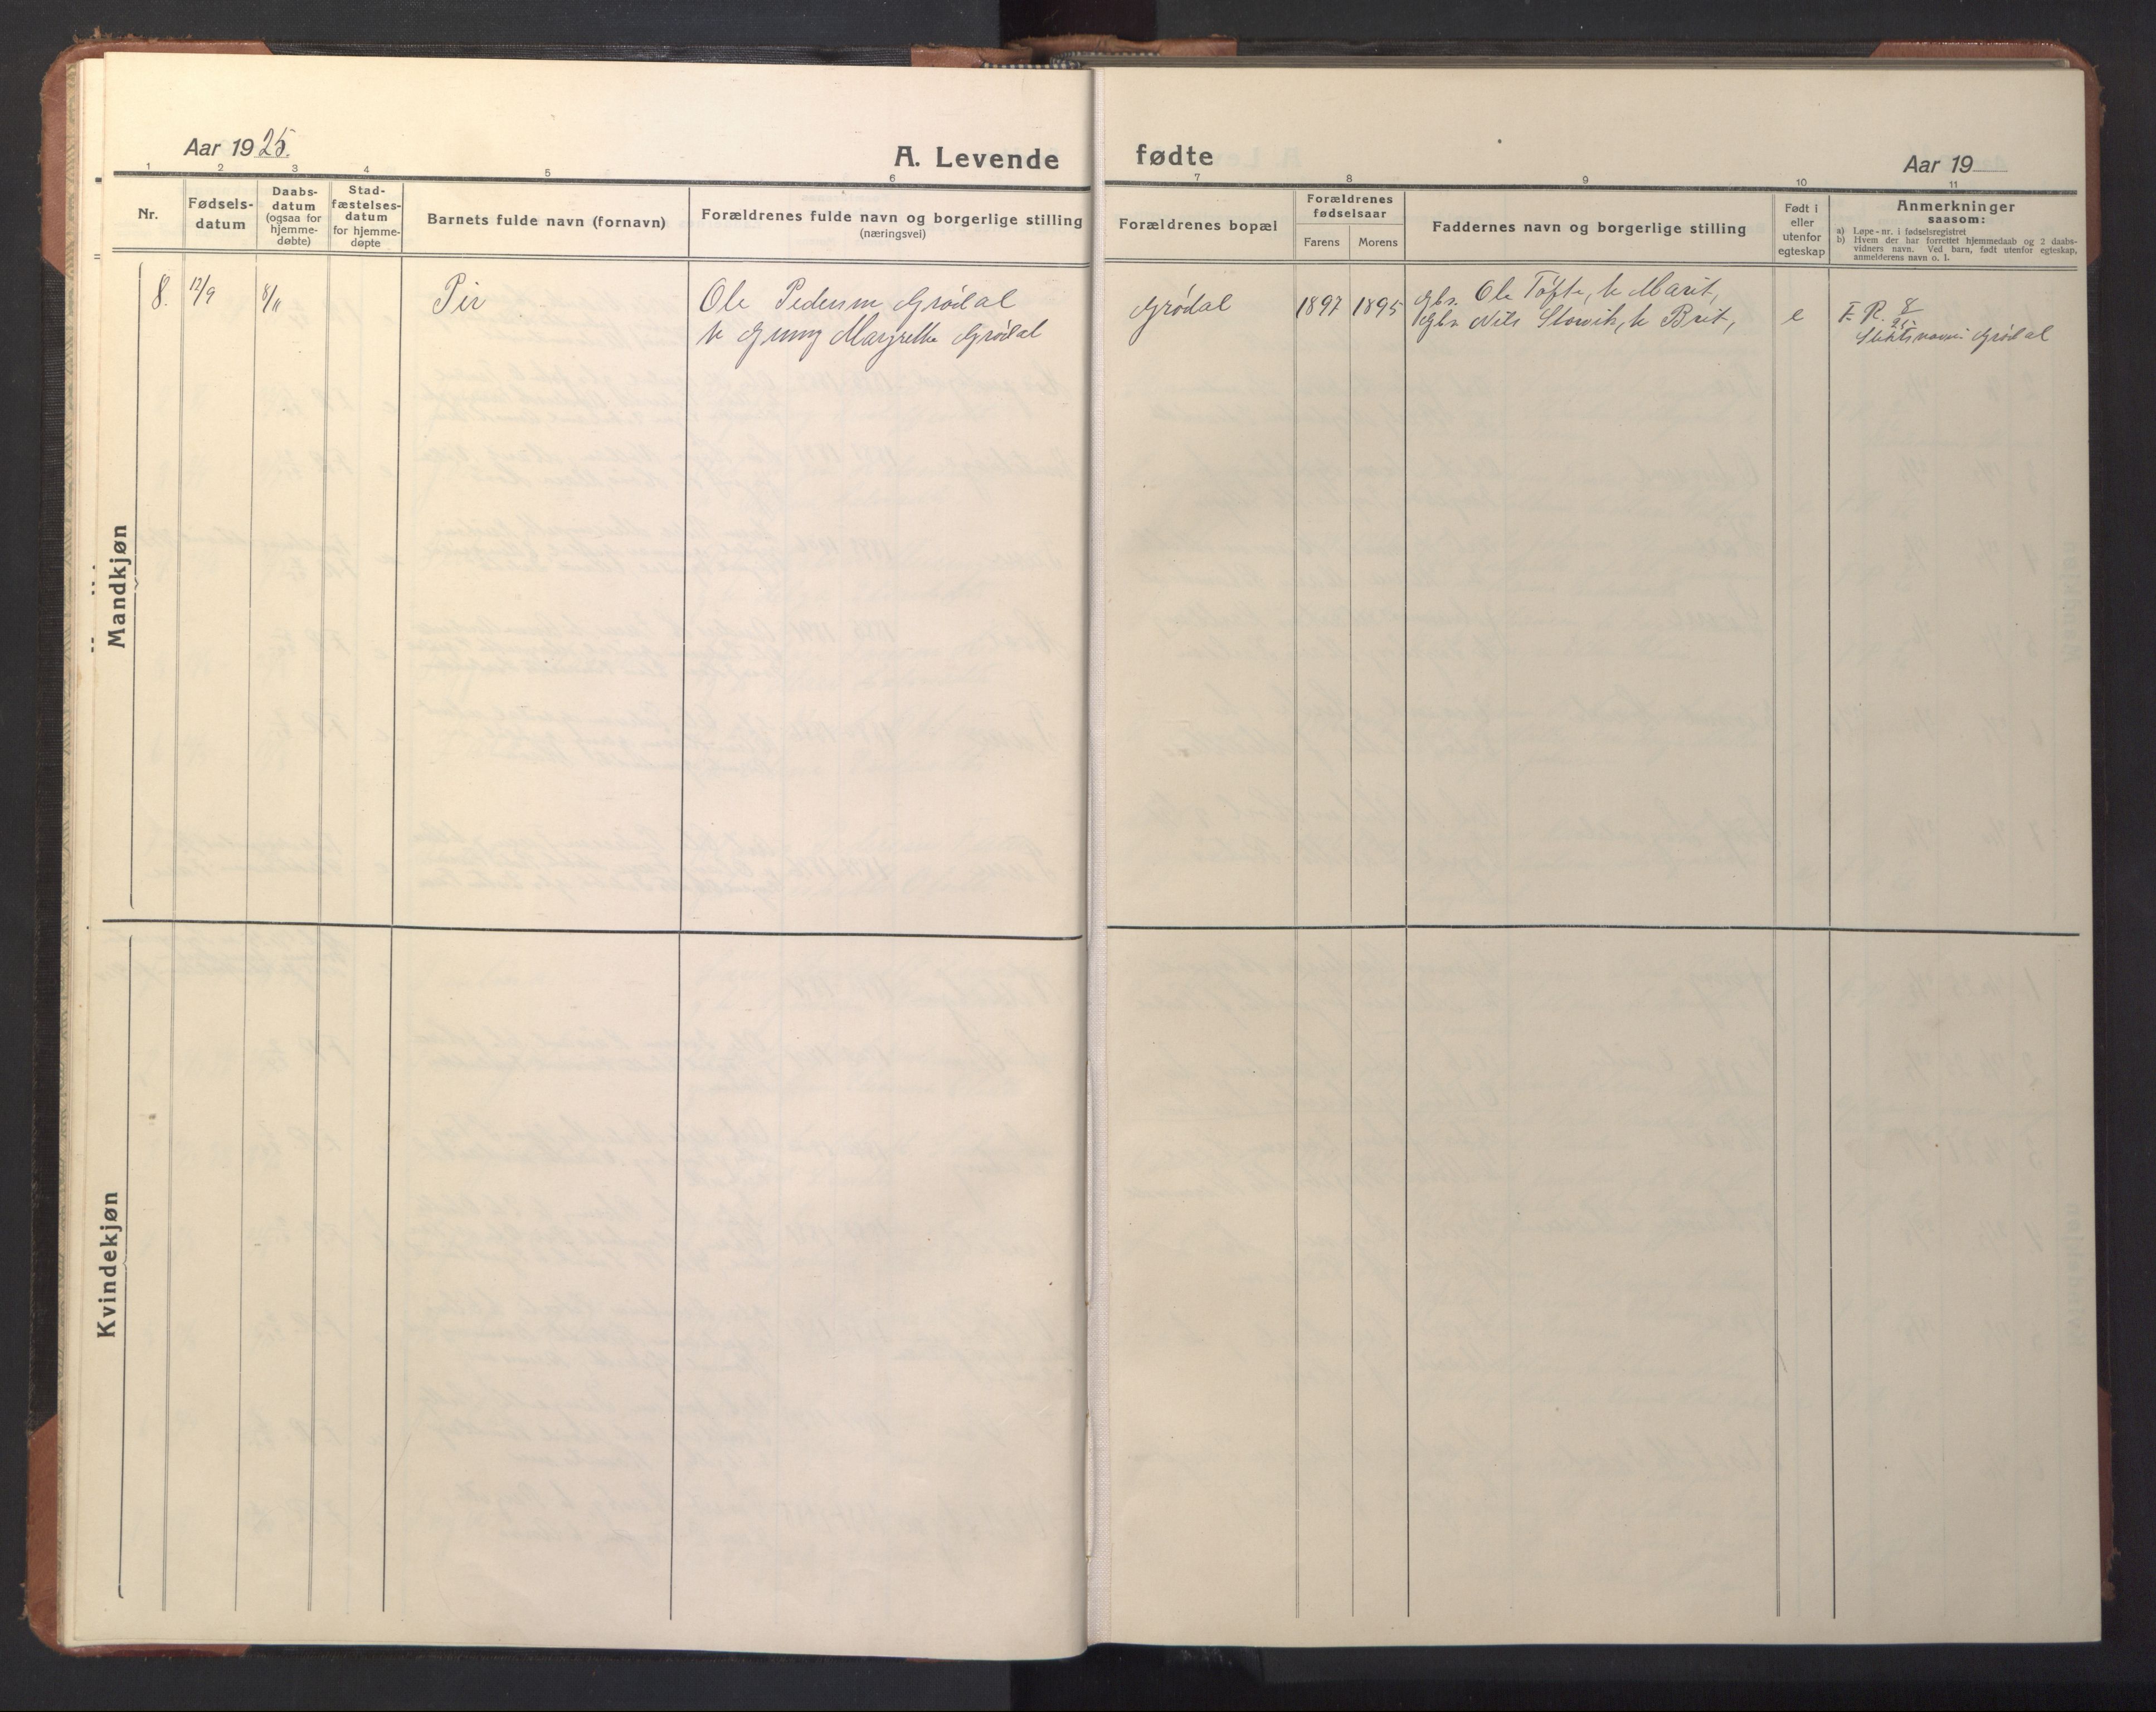 Aar 1925.
A. Levende fødte
Aar 19
1 2 3 4 5 6 7 8 9 10 11
Nr.
Fødsels-
datum
Daabs-
datum
(ogsaa for
hjemme-
døbte)
Stad-
fæstelses-
datum
for hjemme-
døpte
Barnets fulde navn (fornavn)
Forældrenes fulde navn og borgerlige stilling
(næringsvei)
Forældrenes bopæl
Forældrenes
fødselsaar
Farens
Morens
Faddernes navn og borgerlige stilling
Født i
eller
utenfor
egteskap
Anmerkninger
saasom:
a) Løpe-nr. i fødselsregistret
b) Hvem der har forrettet hjemmedaab og 2 daabs-
vidners navn. Ved barn, født utenfor egteskap,
anmelderens navn o. l.
Mandkjøn
8. 12/9 8/11 Per
Ole Pedersen Grödal
h Margrethe Grödal
Grödal
1897 1895
Gbr. Ole Töfte, h Marit,
Gbr. Nils Slowik, h Brit,
e
F. R. 8/25
Slektsnavn Grödal
Kvindekjøn